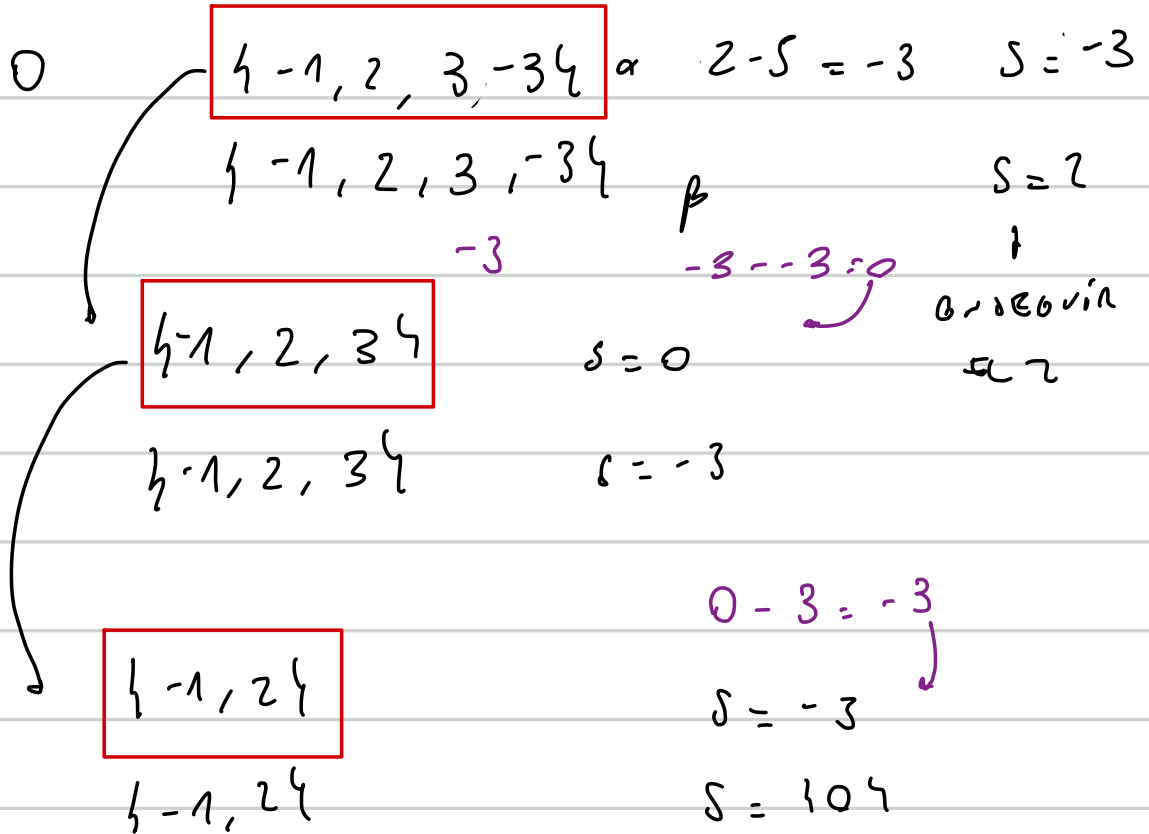 0 {-1, 2, 3, -3} α 2-5 = -3 S = -3
{-1, 2, 3, -3} β S = 2
-3 -3 - -3 = 0
{-1, 2, 3} S = 0
{-1, 2, 3} S = -3
0 - 3 = -3
{-1, 2} S = -3
{-1, 2} S = {0}